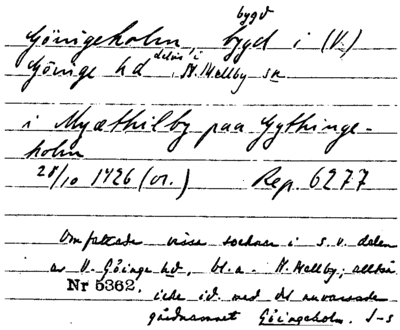 bygd
Göingeholm, bygd i (V.)
Göinge hd delvis i N. Mellby sn
i Myæthilby paa Gythinge-
holm
28/10 1426 (or.) Rep. 6277
Omfattade vissa socknar i s.v. delen
av V. Göinge hd, bl.a. N. Mellby; alltså
Nr 5362. icke id. med det nuvarande
gårdnamnet Göingeholm. J-s